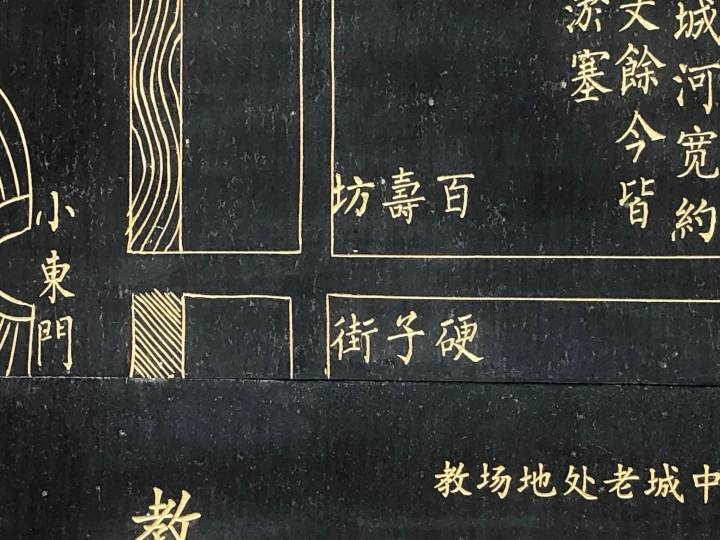 城河宽約
丈餘今皆
淤塞
百壽坊
小東門
硬子街
教场地处老城中
教